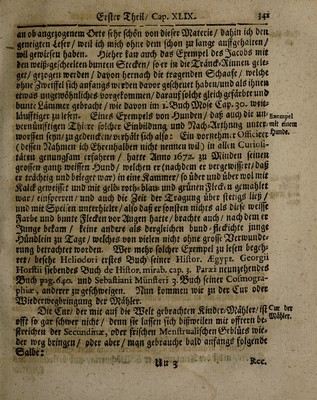 Erster Theil / Cap. XLIX. 341
an ob angezogenem Orte sehr schön von dieser Materie / dahin ich den
geneigten Leser / weil ich mich ohne dem schon zu lange auffgehalten /
wil gewiesen haben. Hieher kan auch das Exempel des Jacobs mit
den weiß-geschelten bunten Stecken / so er in die Tränck-Rinnen gele-
get / gezogen werden / davon hernach die tragenden Schaafe / welche
ohne Zweiffel sich anfangs werden davor gescheuet haben / und als ihnen
etwas ungewöhnliches vorgekommen / darauf solche gleich gefärbte und
bunte Lämmer gebracht / wie davon im 1. Buch Mose Cap. 30. weit-
läufftiger zu lesen. Eines Exempels von Hunden / daß auch die un-
vernünfftigen Thiere solcher Einbildung und Nach-Arthung unter-
worffen seyn / zu gedencken / verhält sich also: Ein vornehmer Officirer
(dessen Nahmen ich Ehrenhalben nicht nennen wil) in allen Curiosi-
täten genungsam erfahren / hatte Anno 1672. zu Minden seinen
grossen gantz weissen Hund / welchen er (nachdem er vergewissert / daß
er trächtig und bleger war) in eine Kammer / so über und über wol mit
Kalck geweisset und mit gelb- roth- blau- und grünen Flecken gemahlet
war / einsperren / und auch die Zeit der Tragung über stetigs ließ /
und mit Speisen unterhielte / also daß er sonsten nichts als diese weisse
Farbe und bunte Flecken vor Augen hatte / brachte auch / nach dem er
Junge bekam / keine andere als dergleichen bund-fleckichte junge
Hündlein zu Tage / welches von vielen nicht ohne grosse Verwunde-
rung betrachtet worden. Wer mehr solcher Exempel zu lesen begeh-
ret / besehe Heliodori erstes Buch seiner Histor. Ægypt. Georgii
Horstii siebendes Buch de Histor. mirab. cap. 3. Paræi neunzehendes
Buch pag. 640. und Sebastiani Münsteri 3. Buch seiner Cosmogra-
phiæ, anderer zu geschweigen. Nun kommen wir zu der Cur oder
Wiederwegbringung der Mähler.
Die Cur / der mit auf die Welt gebrachten Kinder-Mähler / ist
offt so gar schwer nicht / denn sie lassen sich bißweilen mit offtern be-
streichen der Secundinæ, oder frischen Menstrualischen Geblüts wie-
der weg bringen / oder aber / man gebrauche bald anfangs folgende
Salbe:
Uu 3 Rec.
Exempel
mit einem
Hunde.
Cur der
Mähler.